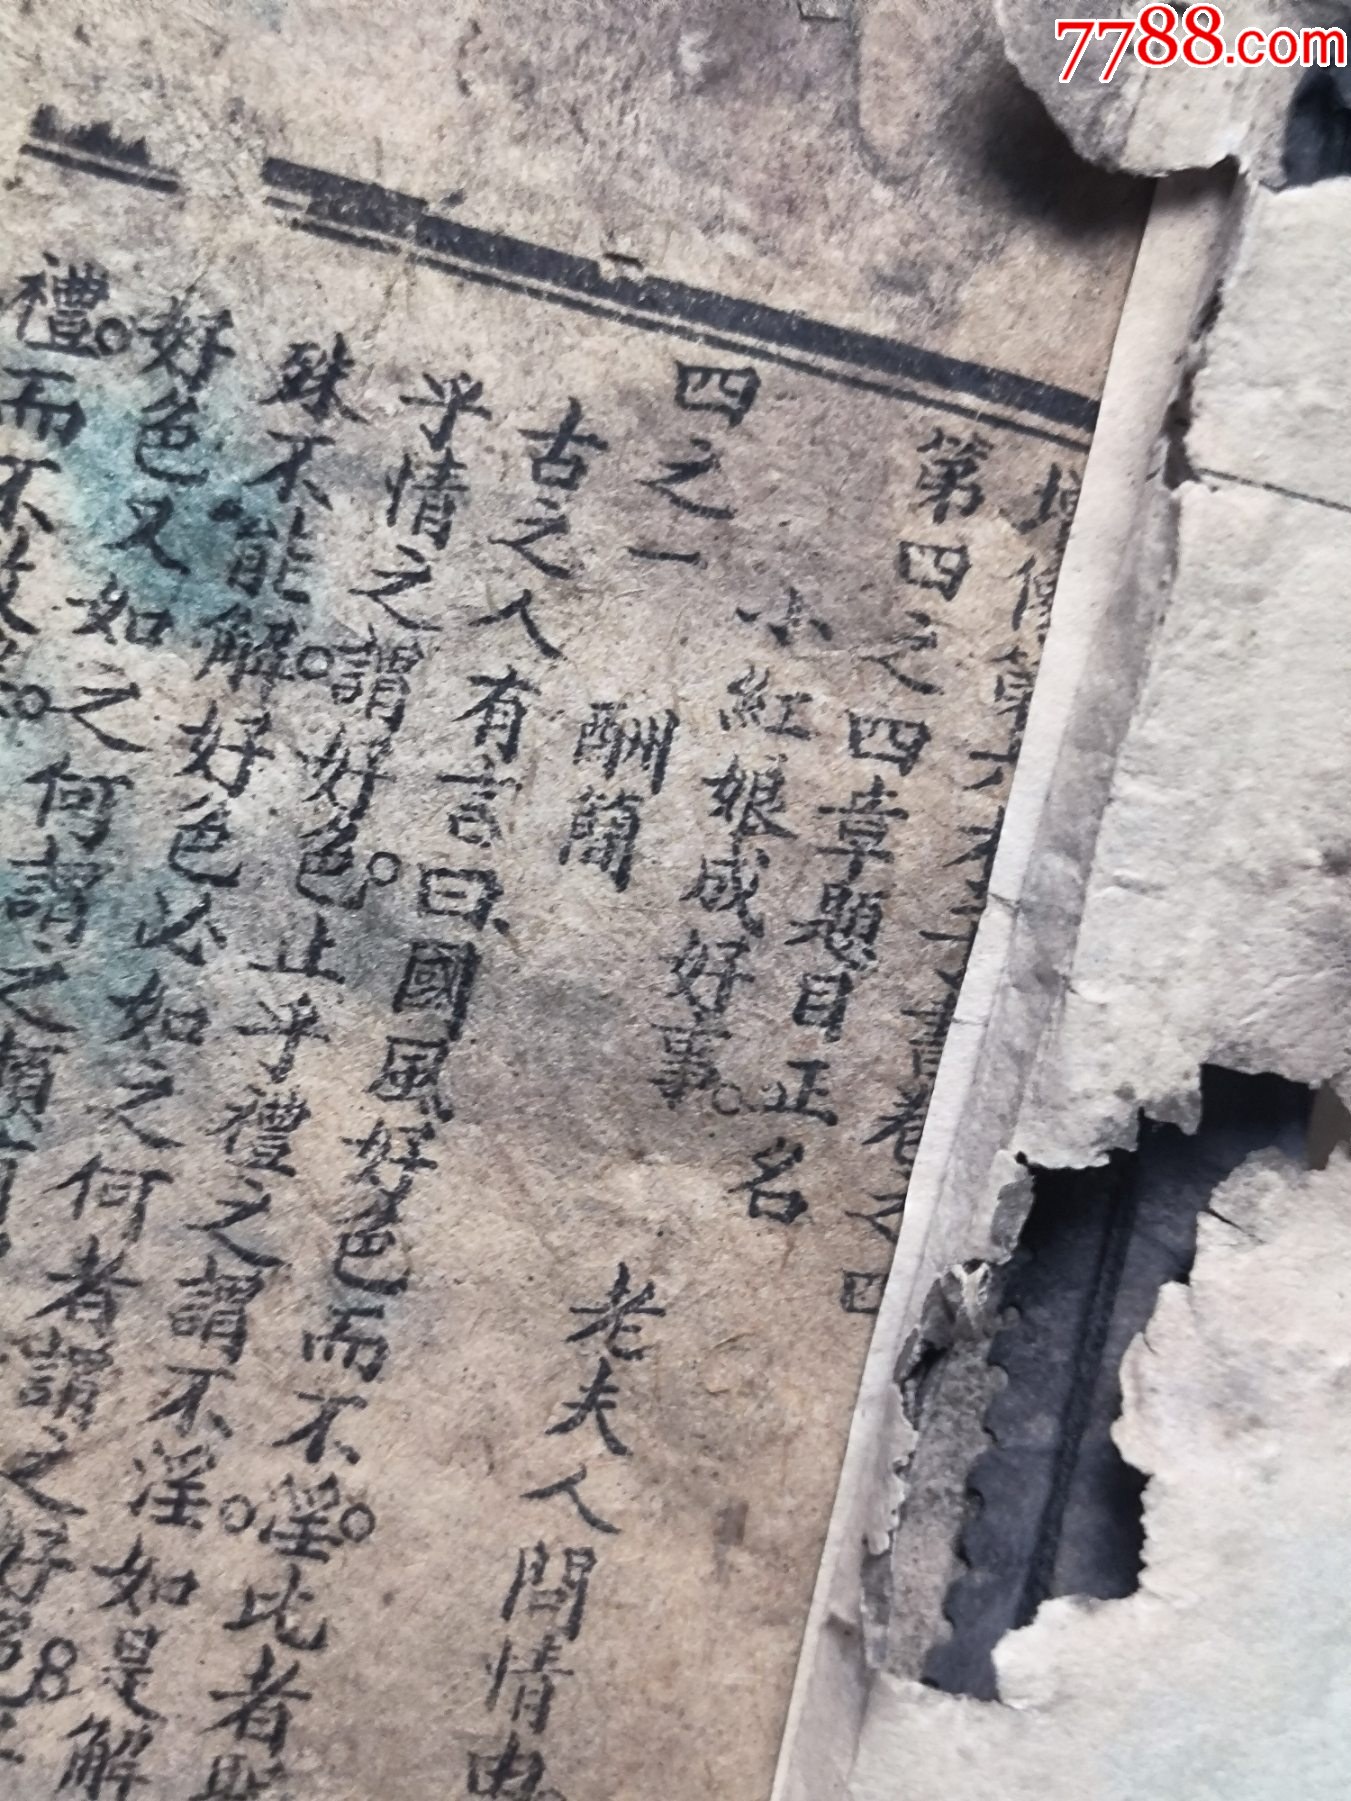 增像第六才子書卷之四
第四之四章題目正名
小紅娘成好事。 老夫人問情由
四之一 酬簡
古之人有言曰國風好色而不淫。比者聖
乎情之謂好色。止乎禮之謂不淫。如是解
殊不能解。好色必如之何者謂之好
好色又如之何謂之
禮。而不敢